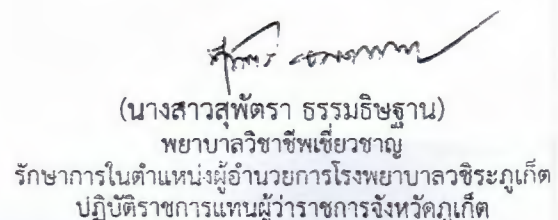 (นางสาวสุพัตรา ธรรมธิษฐาน)
พยาบาลวิชาชีพเชี่ยวชาญ
รักษาการในตำแหน่งผู้อำนวยการโรงพยาบาลวชิระภูเก็ต
ปฏิบัติราชการแทนผู้ว่าราชการจังหวัดภูเก็ต